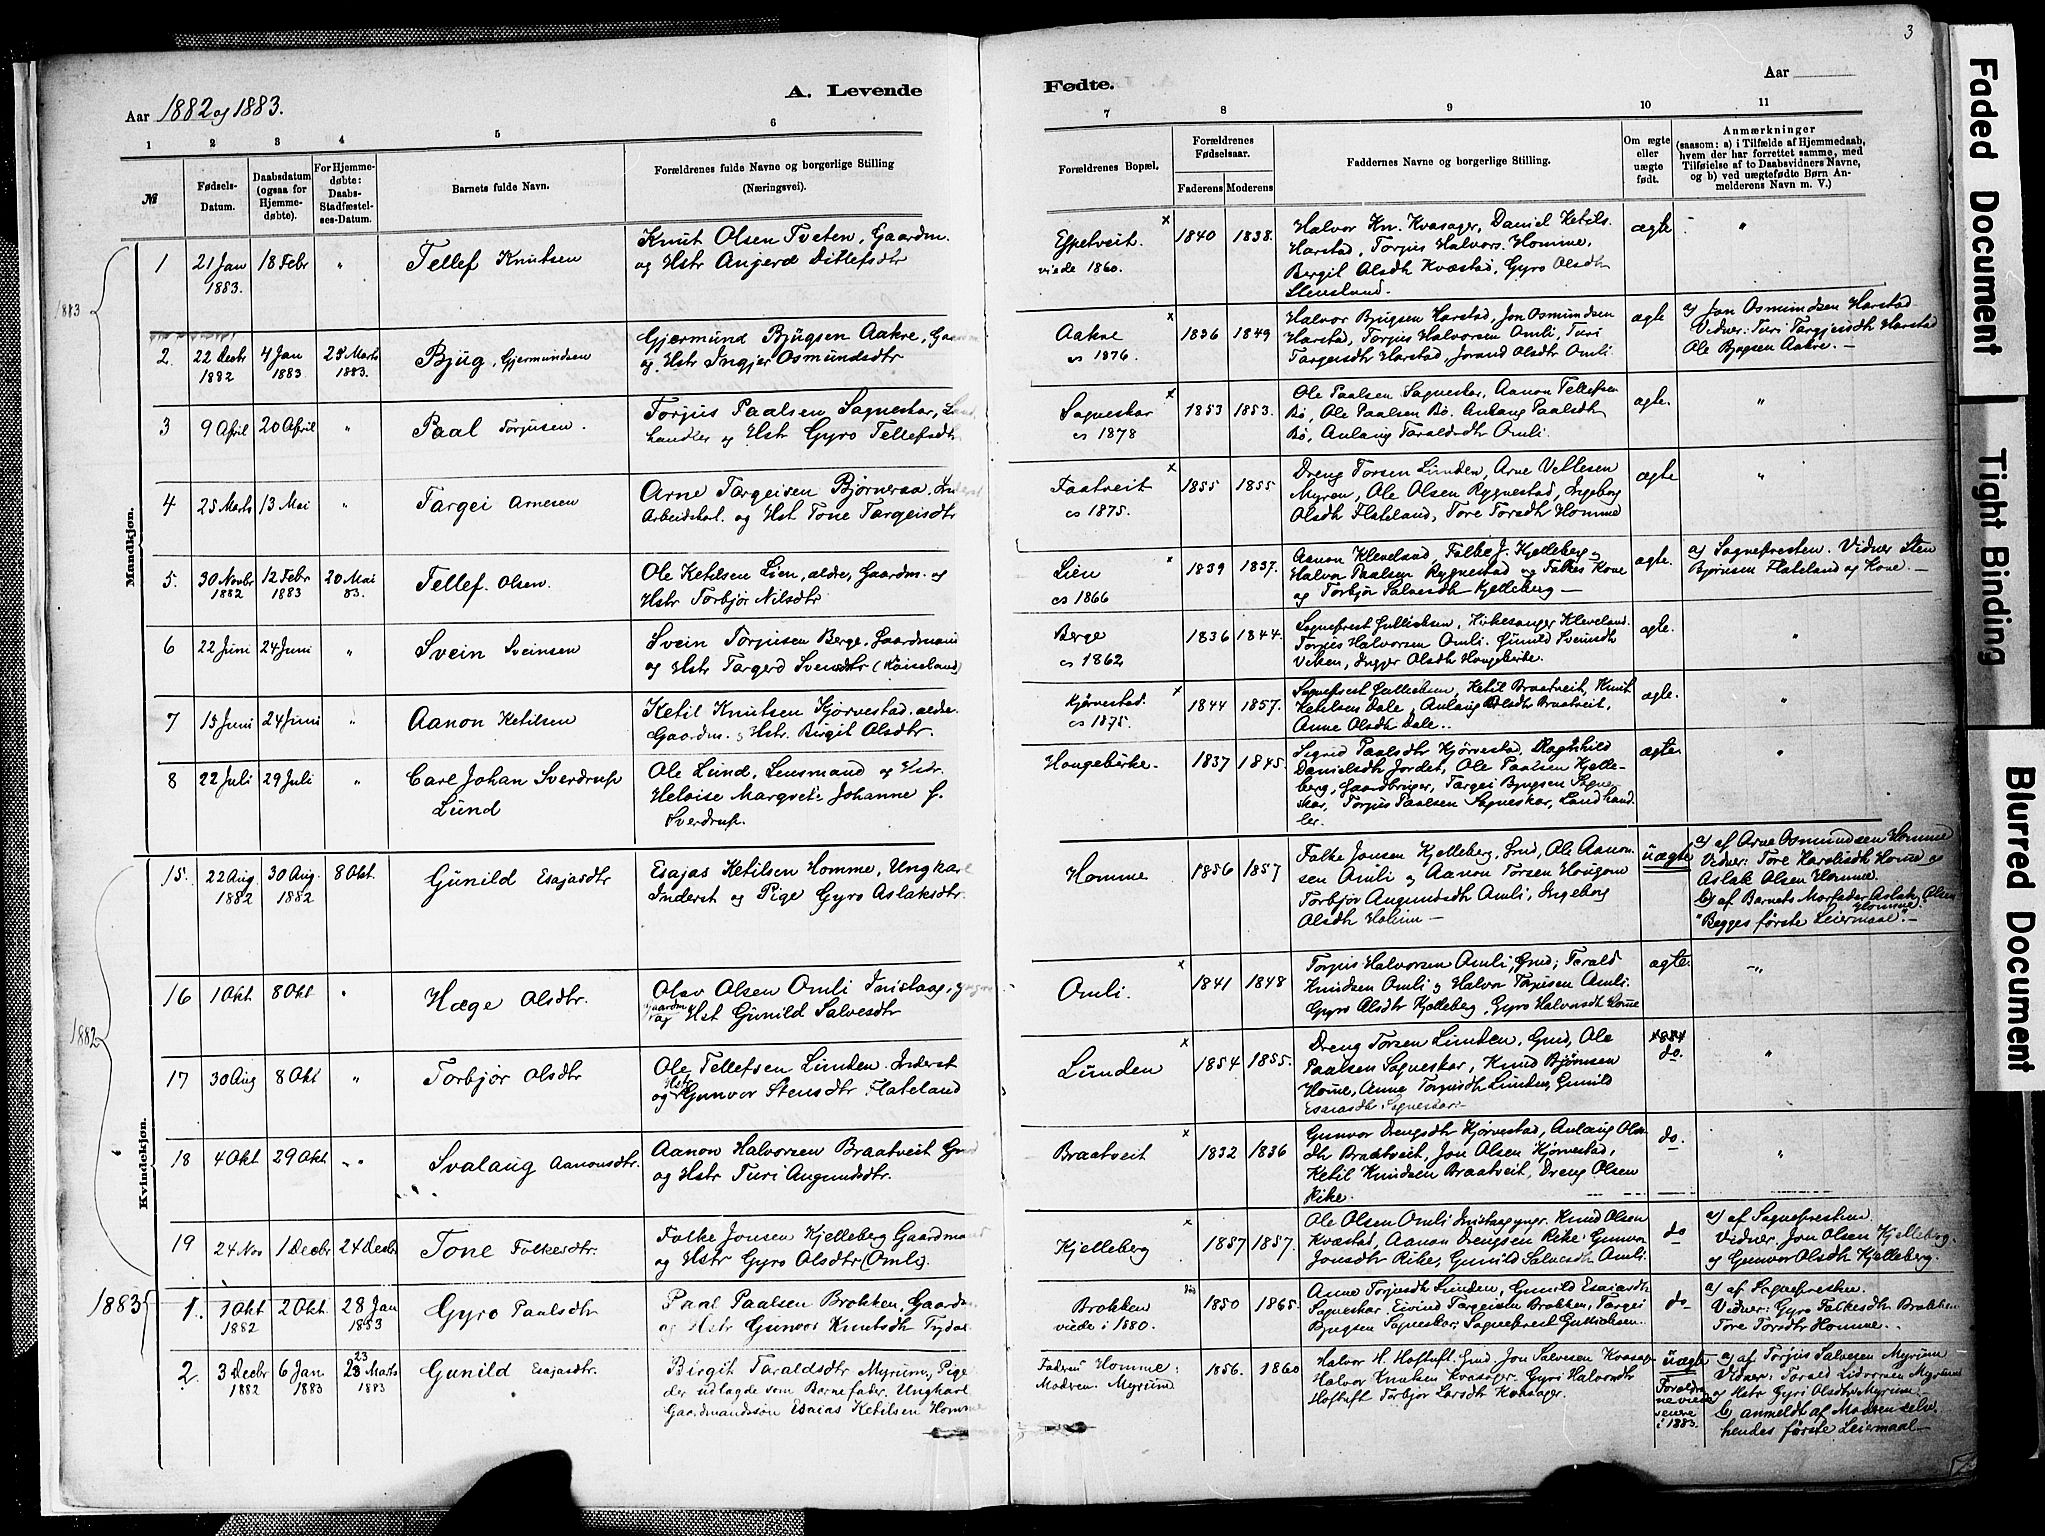 3
Aar 1882 og 1883.
A. Levende
Fødte.
Aar
1 2 3 4 5 6
7 8 9 10 11
№
Fødsels-
Datum.
Daabsdatum
(ogsaa for
Hjemme-
døbte).
For Hjemme-
døbte:
Daabs-
Stadfæstel-
ses-Datum.
Barnets fulde Navn.
Forældrenes fulde Navne og borgerlige Stilling
(Næringsvei).
Forældrenes Bopæl.
Forældrenes
Fødselsaar.
Faderens Moderens
Faddernes Navne og borgerlige Stilling.
Om ægte
eller
uægte
født.
Anmærkninger
(saasom: a) i Tilfælde af Hjemmedaab,
hvem der har forrettet samme, med
Tilføielse af to Daabsvidners Navne,
og b) ved uægtefødte Børn An-
melderens Navn m. V.)
Mandkjøn.
1883
1
21 Jan
1883.
18 Febr
"
Tellef Knutsen
Knut Olsen Tveten, Gaardm.
og Hstr Anjerd Ditlefsdtr
Espetveit.
viede 1860.
1840 1838.
Halvor Kn. Kvasager, Daniel Ketils.
Harstad, Torjus Halvors. Homme,
Bergit Olsdtr Kvæstad, Gyro Olsdtr
Stensland.
ægte
"
2.
22 Decbr
1882
4 Jan
1883
25 Marts
1883.
Bjug, Gjermundsen
Gjermund Bjugsen Aakre,
og Hstr Ingjer Osmundsdtr
Aakre
1876.
1836 1849
Halvor Bjugsen Harstad, Jon Osmundsen
Harstad, Torjus Halvorsen Omli, Turi
Targeisdtr Harstad, Jorand Olsdtr Omli.
ægte
a) Jon Osmundsen Harstad
Vidner: Turi Targjeisdtr Harstad
Ole Bjugsen Aakre. —
3
9 April
20 April
"
Paal Torjusen.
Torjus Paalsen Sagneskar, Land-
handler og Hstr Gyro Tellefsdtr
Sagneskar
1878
1853 1853.
Ole Paalsen Sagneskar, Aanon Tellefsen
Bø, Ole Paalsen Bø. Anlaug Paalsdtr
Bø, Anlaug Taraldsdtr Omli.
ægte.
"
4
25 Marts
13 Mai
"
Targei Arnesen
Arne Targeisen Bjørneraa, Inderst
Arbeidskarl. og Hst Tone Targeisdtr
Faatveit
1875.
1855 1855
Dreng Torsen Lunden, Arne Vetlesen
Myren, Ole Olsen Rygnestad, Ingeborg
Olsdtr Flateland, Tore Torsdtr Homme
ægte
"
5.
30 Novbr
1882
12 Febr
1883
20 Mai
83.
Tellef. Olsen.
Ole Ketilsen Lien, ældre, Gaardm. og
Hstr Torbjør Nilsdtr
Lien
1866
1839 1837.
Aanon Kleveland, Falke J. Kjelleberg og
Halvor Paalsen Rygnestad og Falkes Kone
og Torbjør Salvesdtr Kjelleberg —
ægte.
a) Sognepresten. Vidner Sten
Bjørnsen Flateland og Kone. —
6
22 Juni
24 Juni
"
Svein Sveinsen
Svein Torjusen Berge, Gaardmand
og Hstr Targerd Svensdtr
Berge
1862
1836 1844.
Sogneprest Gullicksen, Kirkesanger Kleveland.
Torjus Halvorsen Omli. Gunild Svensdtr
Viken, Ingjer Olsdtr Hougebirke.
ægte.
"
7
15 Juni
24 Juni
"
Aanon Ketilsen
Ketil Knutsen Kjørvestad, ældre.
Gaardm. og Hstr. Birgit Olsdtr.
Kjørvestad.
1875.
1844 1857.
Sogneprest Gullicksen, Ketil Braatveit, Knut
Ketilsen Dale, Anlaug Olsdtr Braatveit,
Anne Olsdtr Dale..
ægte.
"
8
22 Juli
29 Juli
"
Carl Johan Sverdrup
Lund
Ole Lund, Lensmand og Hstr.
Heloise Margret: Johanne f.
Sverdrup.
Hougebirke.
1837 1845.
Sigrid Paalsdtr Kjørvestad, Raghnild
Danielsdtr Jordet, Ole Paalsen Kjelle-
berg, Gaardbruger, Targei Bjugsen Sagne-
skar, Torjus Paalsen Sagneskar, Landhand-
ler.
ægte.
"
Kvindekjøn.
1882
15.
22 Aug.
1882
30 Aug.
1882
8 Okt.
Gunild Esajasdtr
Esajas Ketilsen Homme, Ungkarl
Inderst og Pige Gyro Aslaksdtr.
Homme
1856 1857
Falke Jonsen Kjelleberg, Gmd, Ole Aanon-
sen Omli og Aanon Torsen Hougom
Torbjør Augundsdtr Omli, Ingeborg
Olsdtr Holum —
uægte
a) af Arne Osmundsen Homme
Vidner: Tore Haraldsdtr Homme og
Aslak Olsen Homme.
b) af Barnets Morfader Aslak Olsen
Homme.
"Begges første Leiermaal". —
16
1 Okt
8 Okt
"
Hæge Olsdtr.
Olav Olsen Omli Instaag, yngre
Gaardm.
og Hst Gunild Salvesdtr
Omli.
1841 1848
Torjus Halvorsen Omli, Gmd; Tarald
Knudsen Omli og Halvor Torjusen Omli.
Gyro Olsdtr Kjelleberg, Gyro Halvorsdtr Home
ægte.
"
17
30 Aug
8 Okt
"
Torbjør Olsdtr
Ole Tellefsen Lunden, Inderst
Hstr
og Gunvor Stensdtr Flateland
Lunden
1854 1855.
Dreng Torsen Lunden, Gmd, Ole
Paalsen Sagneskar, Knud Bjørnsen
Home, Anne Torjusdtr Lunden, Gunild
Esaiasdtr Sagneskar.
do.
"
18
4 Okt
29 Okt
"
Svalaug Aanonsdtr.
Aanon Halvorsen Braatveit Gmd
og Hstr Turi Augundsdtr.
Braatveit
1832 1836
Gunvor Drengsdtr Kjørvestad, Anlaug Ols-
dtr Braatveit, Jon Olsen Kjørvestad,
Ketil Knudsen Braatveit, Dreng Olsen
Rike.
do.
"
19
24 Nov
1 Decbr
24 Decbr
Tone Falkesdtr.
Falke Jonsen Kjelleberg Gaardmand
og Hstr Gyro Olsdtr (Omli).
Kjelleberg
1857 1857.
Ole Olsen Omli Instaag yngr. Knud Olsen
Kvæstad, Aanon Drengsen Rike, Gunvor
Jonsdtr Rike, Gunild Salvesdtr Omli.
do
a) af Sognepresten.
Vidner: Jon Olsen Kjelleberg.
og Gunvor Olsdtr Kjelleberg.
1883
1.
1 Okt
1882
2 Okt.
28 Jan
1883
Gyro Paalsdtr
Paal Paalsen Brokken, Gaardm.
og Hstr Gunvor Knutsdtr
Brokken
viede i 1880.
1850 1865.
Anne Torjusdtr Lunden, Gunild Esaiasdtr
Sagneskar, Eivind Targeisen Brokken, Targei
Bjugsen Sagneskar, Sogneprest Gullicksen.
do
a) af Sognepresten.
Vidner: Gyro Falkesdtr Brokken
Tore Torsdtr Homme.
2.
3 Decbr
1882
6 Jan.
1883
23
23 Marts
1883
Gunild Esajasdtr.
Birgit Taraldsdtr Myrum, Pige
der udlagde som Barnefader, Ungkarl
Gaardmandssøn Esaias Ketilsen Homme
Fadren: Homme:
Modren: Myrum
1856. 1860
Halvor H. Hoftuft. Gmd. Jon Salvesen Kvasager
Halvor Knutsen Kvasager. Gyri Halvorsdtr
Hoftuft. Torbjør Larsdtr Kvasager.
uægte
Foreldre-
ne viede
senere
i 1883.
a) af Torjus Salvesen Myrum
Vidner: Tarald Lidvorsen Myrum
og Hstr Gyri Olsdtr Myrum.
b) anmeldt af Modren selv.
hendes første Leiermaal —
Faded Document
Tight Binding
Blurred Document